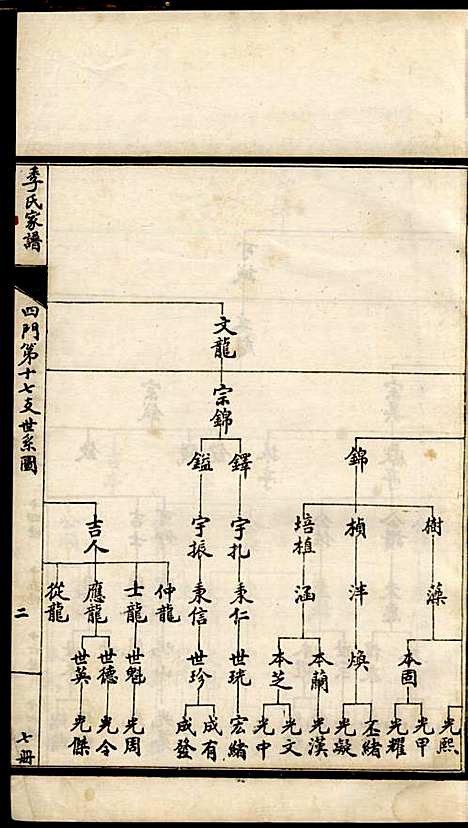 季氏家譜
四門第十七支世系圖
二
七册
文龍
宗錦
錦
鐸
鎰
樹
楨
培植
宇扎
宇振
吉人
藻
泮
涵
秉仁
秉信
仲龍
士龍
應龍
從龍
本固
煥
本蘭
本芝
世珖
世珍
世魁
世德
世英
光熙
光甲
光耀
丕緒
光凝
光漢
光文
光中
宏緒
成有
成發
光周
光令
光傑